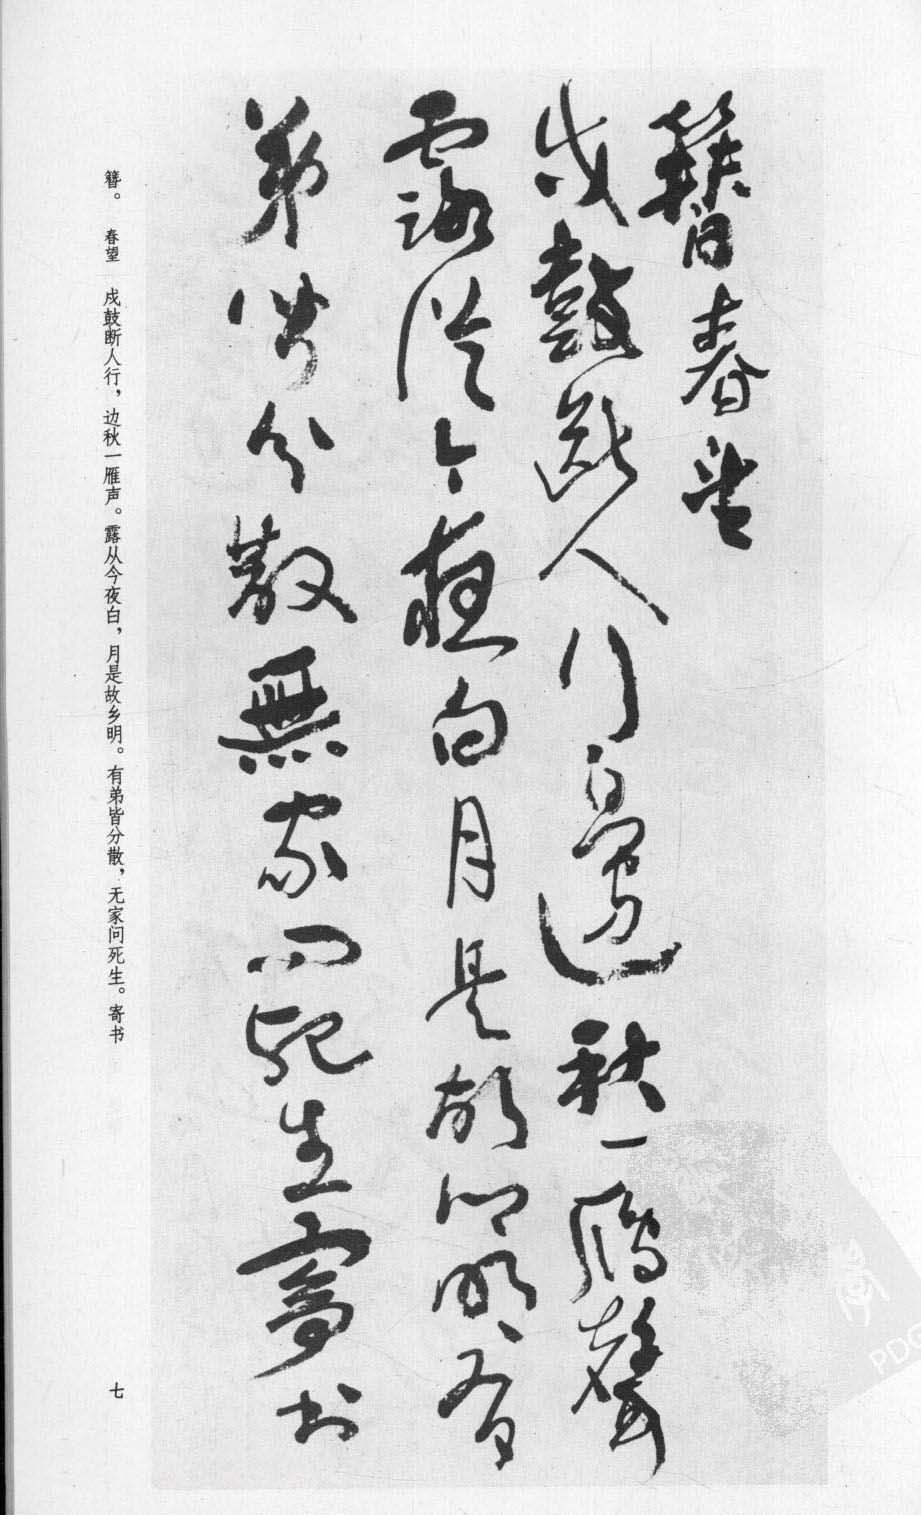 簪春望
戍鼓断人行邊秋一雁聲
露從今夜白月是故鄉明有
弟皆分散無家問死生寄书
簪。 春望 戍鼓断人行，边秋一雁声。露从今夜白，月是故乡明。有弟皆分散，无家问死生。寄书
七
PDG